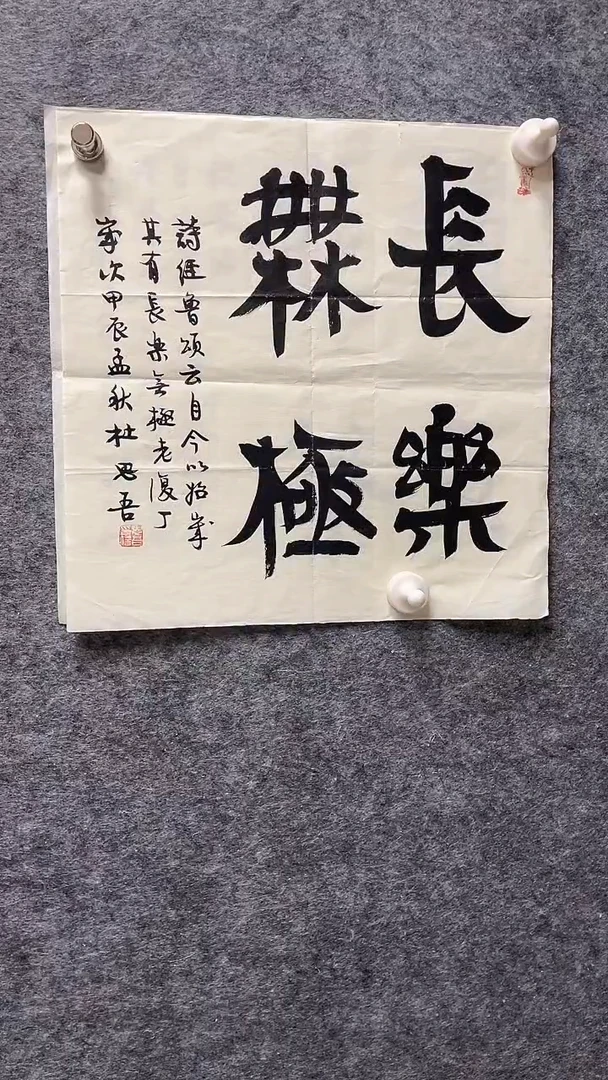 長樂
橆極
詩經魯頌云自今以始歲
其有長樂無極老復丁
歲次甲辰孟秋杜思吾